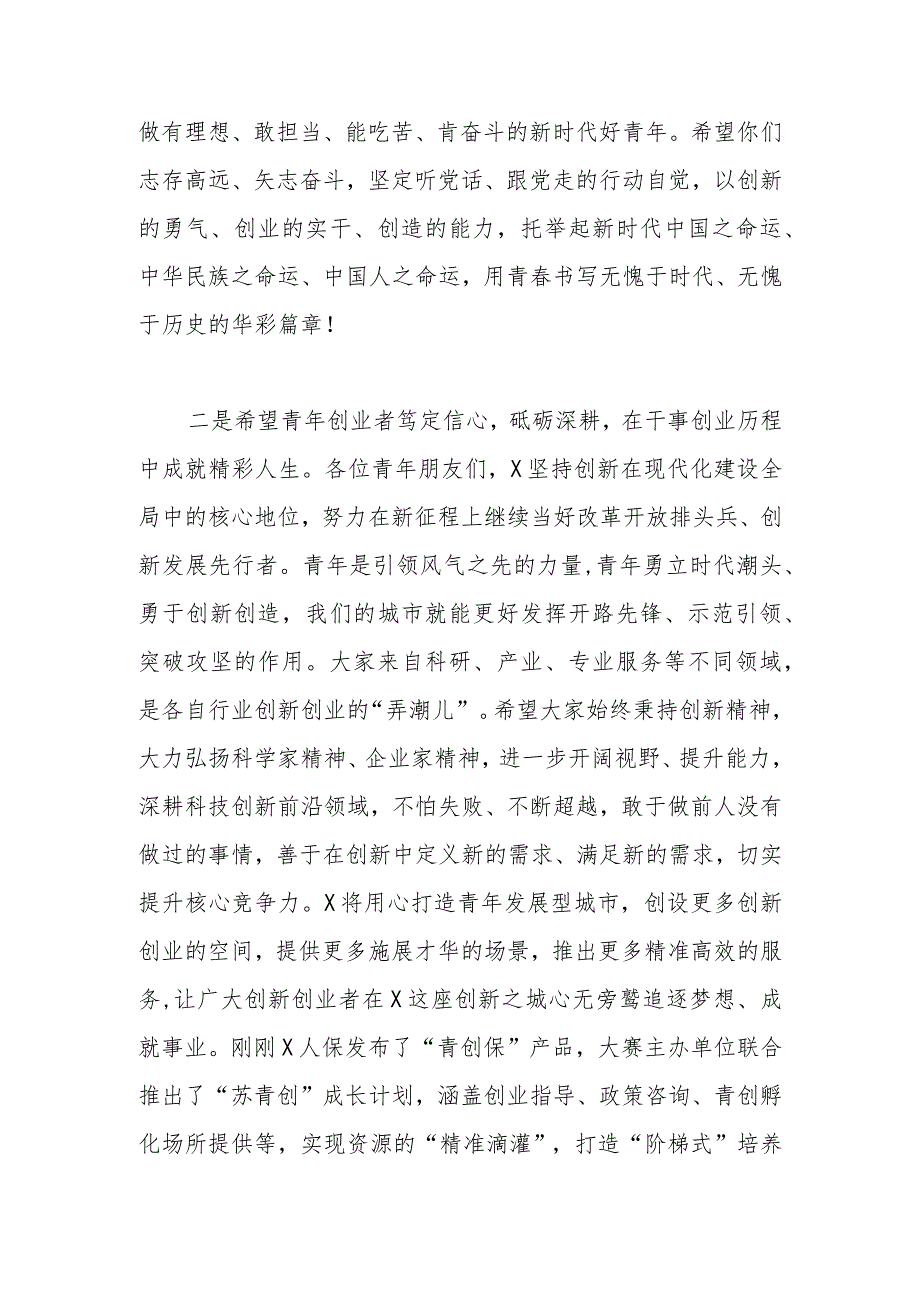 做有理想、敢担当、能吃苦、肯奋斗的新时代好青年。希望你们
志存高远、矢志奋斗，坚定听党话、跟党走的行动自觉，以创新
的勇气、创业的实干、创造的能力，托举起新时代中国之命运、
中华民族之命运、中国人之命运，用青春书写无愧于时代、无愧
于历史的华彩篇章！
二是希望青年创业者笃定信心，砥砺深耕，在干事创业历程
中成就精彩人生。各位青年朋友们，X坚持创新在现代化建设全
局中的核心地位，努力在新征程上继续当好改革开放排头兵、创
新发展先行者。青年是引领风气之先的力量,青年勇立时代潮头、
勇于创新创造，我们的城市就能更好发挥开路先锋、示范引领、
突破攻坚的作用。大家来自科研、产业、专业服务等不同领域，
是各自行业创新创业的“弄潮儿”。希望大家始终秉持创新精神，
大力弘扬科学家精神、企业家精神，进一步开阔视野、提升能力，
深耕科技创新前沿领域，不怕失败、不断超越，敢于做前人没有
做过的事情，善于在创新中定义新的需求、满足新的需求，切实
提升核心竞争力。X将用心打造青年发展型城市，创设更多创新
创业的空间，提供更多施展才华的场景，推出更多精准高效的服
务,让广大创新创业者在X这座创新之城心无旁鹜追逐梦想、成
就事业。刚刚X人保发布了“青创保”产品，大赛主办单位联合
推出了“苏青创”成长计划，涵盖创业指导、政策咨询、青创孵
化场所提供等，实现资源的“精准滴灌”，打造“阶梯式”培养